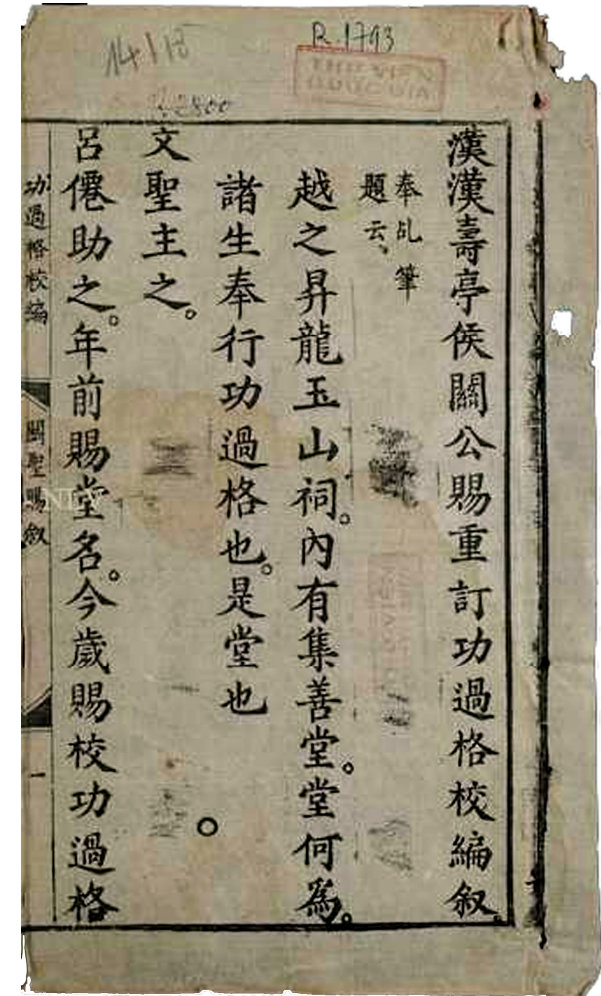 14118
R.1793
THU VIEN
QUOC GIA
R.2800
漢漢壽亭侯關公賜重訂功過格校編叙。
奉乩筆
題云、
越之昇龍玉山祠。內有集善堂。堂何爲。
諸生奉行功過格也。是堂也。
文聖主之。
呂僊助之。年前賜堂名。今歲賜校功過格
功過格校編
關聖賜叙
一